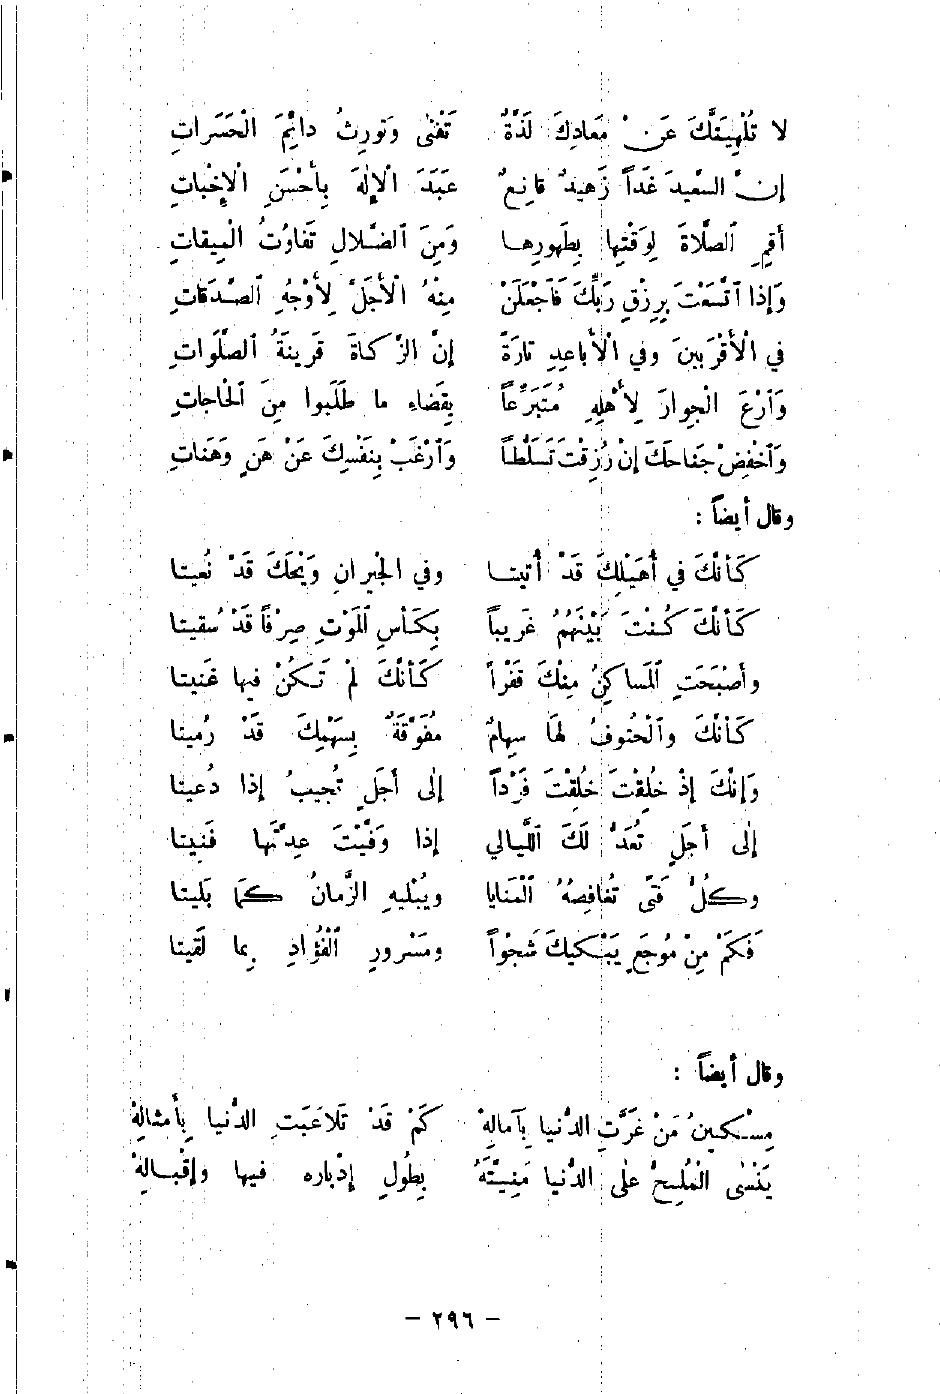 لا تُلْهِيَنَّكَ عَنْ مَعادِكَ لَذَّةٌ تَفْنَى وَتورِثُ دائِمَ الْحَسَراتِ
إنَّ السَّعِيدَ غَداً زَهِيدٌ قانِعٌ عَبَدَ الْإِلٰهَ بِأَحْسَنِ الْإِخْباتِ
أَقِمِ الصَّلاةَ لِوَقْتِها بِطَهورِها وَمِنَ الضَّلالِ تَفاوُتُ الْمِيقاتِ
وَإِذا اتَّسَعْتَ بِرِزْقِ رَبِّكَ فَاجْعَلَنْ مِنْهُ الْأَجَلَّ لِأَوْجُهِ الصَّدَقاتِ
في الْأَقْرَبِينَ وفي الْأَباعِدِ تارَةً إنَّ الزَّكاةَ قَرِينَةُ الصَّلَواتِ
وَارْعَ الْجِوارَ لِأَهْلِهِ مُتَبَرِّعاً بِقَضاءِ ما طَلَبوا مِنَ الْحاجاتِ
وَاخْفِضْ جَناحَكَ إنْ رُزِقْتَ تَسَلُّطاً وَارْغَبْ بِنَفْسِكَ عَنْ هَنٍ وَهَناتِ
وقال أيضاً :
كَأَنَّكَ في أُهَيْلِكَ قَدْ أُتِيتا وفي الْجِيرانِ وَيْحَكَ قَدْ نُعِيتا
كَأَنَّكَ كُنْتَ بَيْنَهُمُ غَرِيباً بِكَأْسِ الْمَوْتِ صِرْفاً قَدْ سُقِيتا
وأَصْبَحَتِ الْمَساكِنُ مِنْكَ قَفْراً كَأَنَّكَ لَمْ تَكُنْ فيها غَنِيتا
كَأَنَّكَ والْحُتوفُ لَها سِهامٌ مُفَوَّقَةٌ بِسَهْمِكَ قَدْ رُمِينا
وَإِنَّكَ إذْ خلِقْتَ خُلِقْتَ فَرْداً إلى أَجَلٍ تُجِيبُ إذا دُعِيتا
إلى أَجَلٍ تُعَدُّ لَكَ اللَّيالي إذا وَفَّيْتَ عِدَّتَها فَنِيتا
وكُلُّ فَتىً تُغافِصُهُ الْمَنايا ويُبْلِيهِ الزَّمانُ كما بَلِيتا
فَكَمْ مِنْ مُوجَعٍ يَبْكِيكَ شَجْواً ومَسْرورِ الْفُؤادِ بِما لَقِيتا
وقال أيضاً :
مِسْكينُ مَنْ غَرَّتِ الدُّنيا بِآمالِهْ كَمْ قَدْ تَلاعَبَتِ الدُّنيا بِأَمثالِهْ
يَنْسَى الْمُلِحُّ عَلَى الدُّنيا مَنِيَّتَهُ بِطُولِ إدْباره فيها وإقْبالِهْ
- ٢٩٦ -